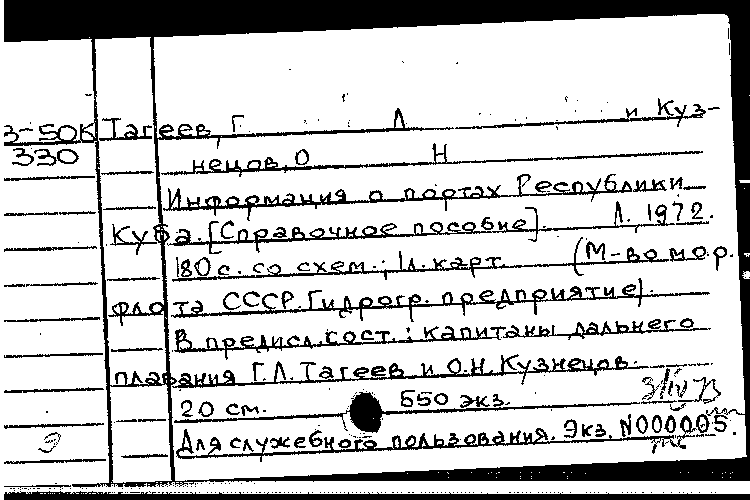 3-50К Тагеев, Г Л и Куз-
330 нецов, О Н
Информация о портах Республики
Куба. [Справочное пособие]. Л. 1972.
180 с. со схем.; 1 л. карт. (М-во мор.
флота СССР. Гидрогр. предприятие).
В предисл. сост.: капитаны дальнего
плавания Г.Л. Тагеев и О.Н. Кузнецов.
20 см. 550 экз. 3/IV 73
Для служебного пользования. Экз. N000005.